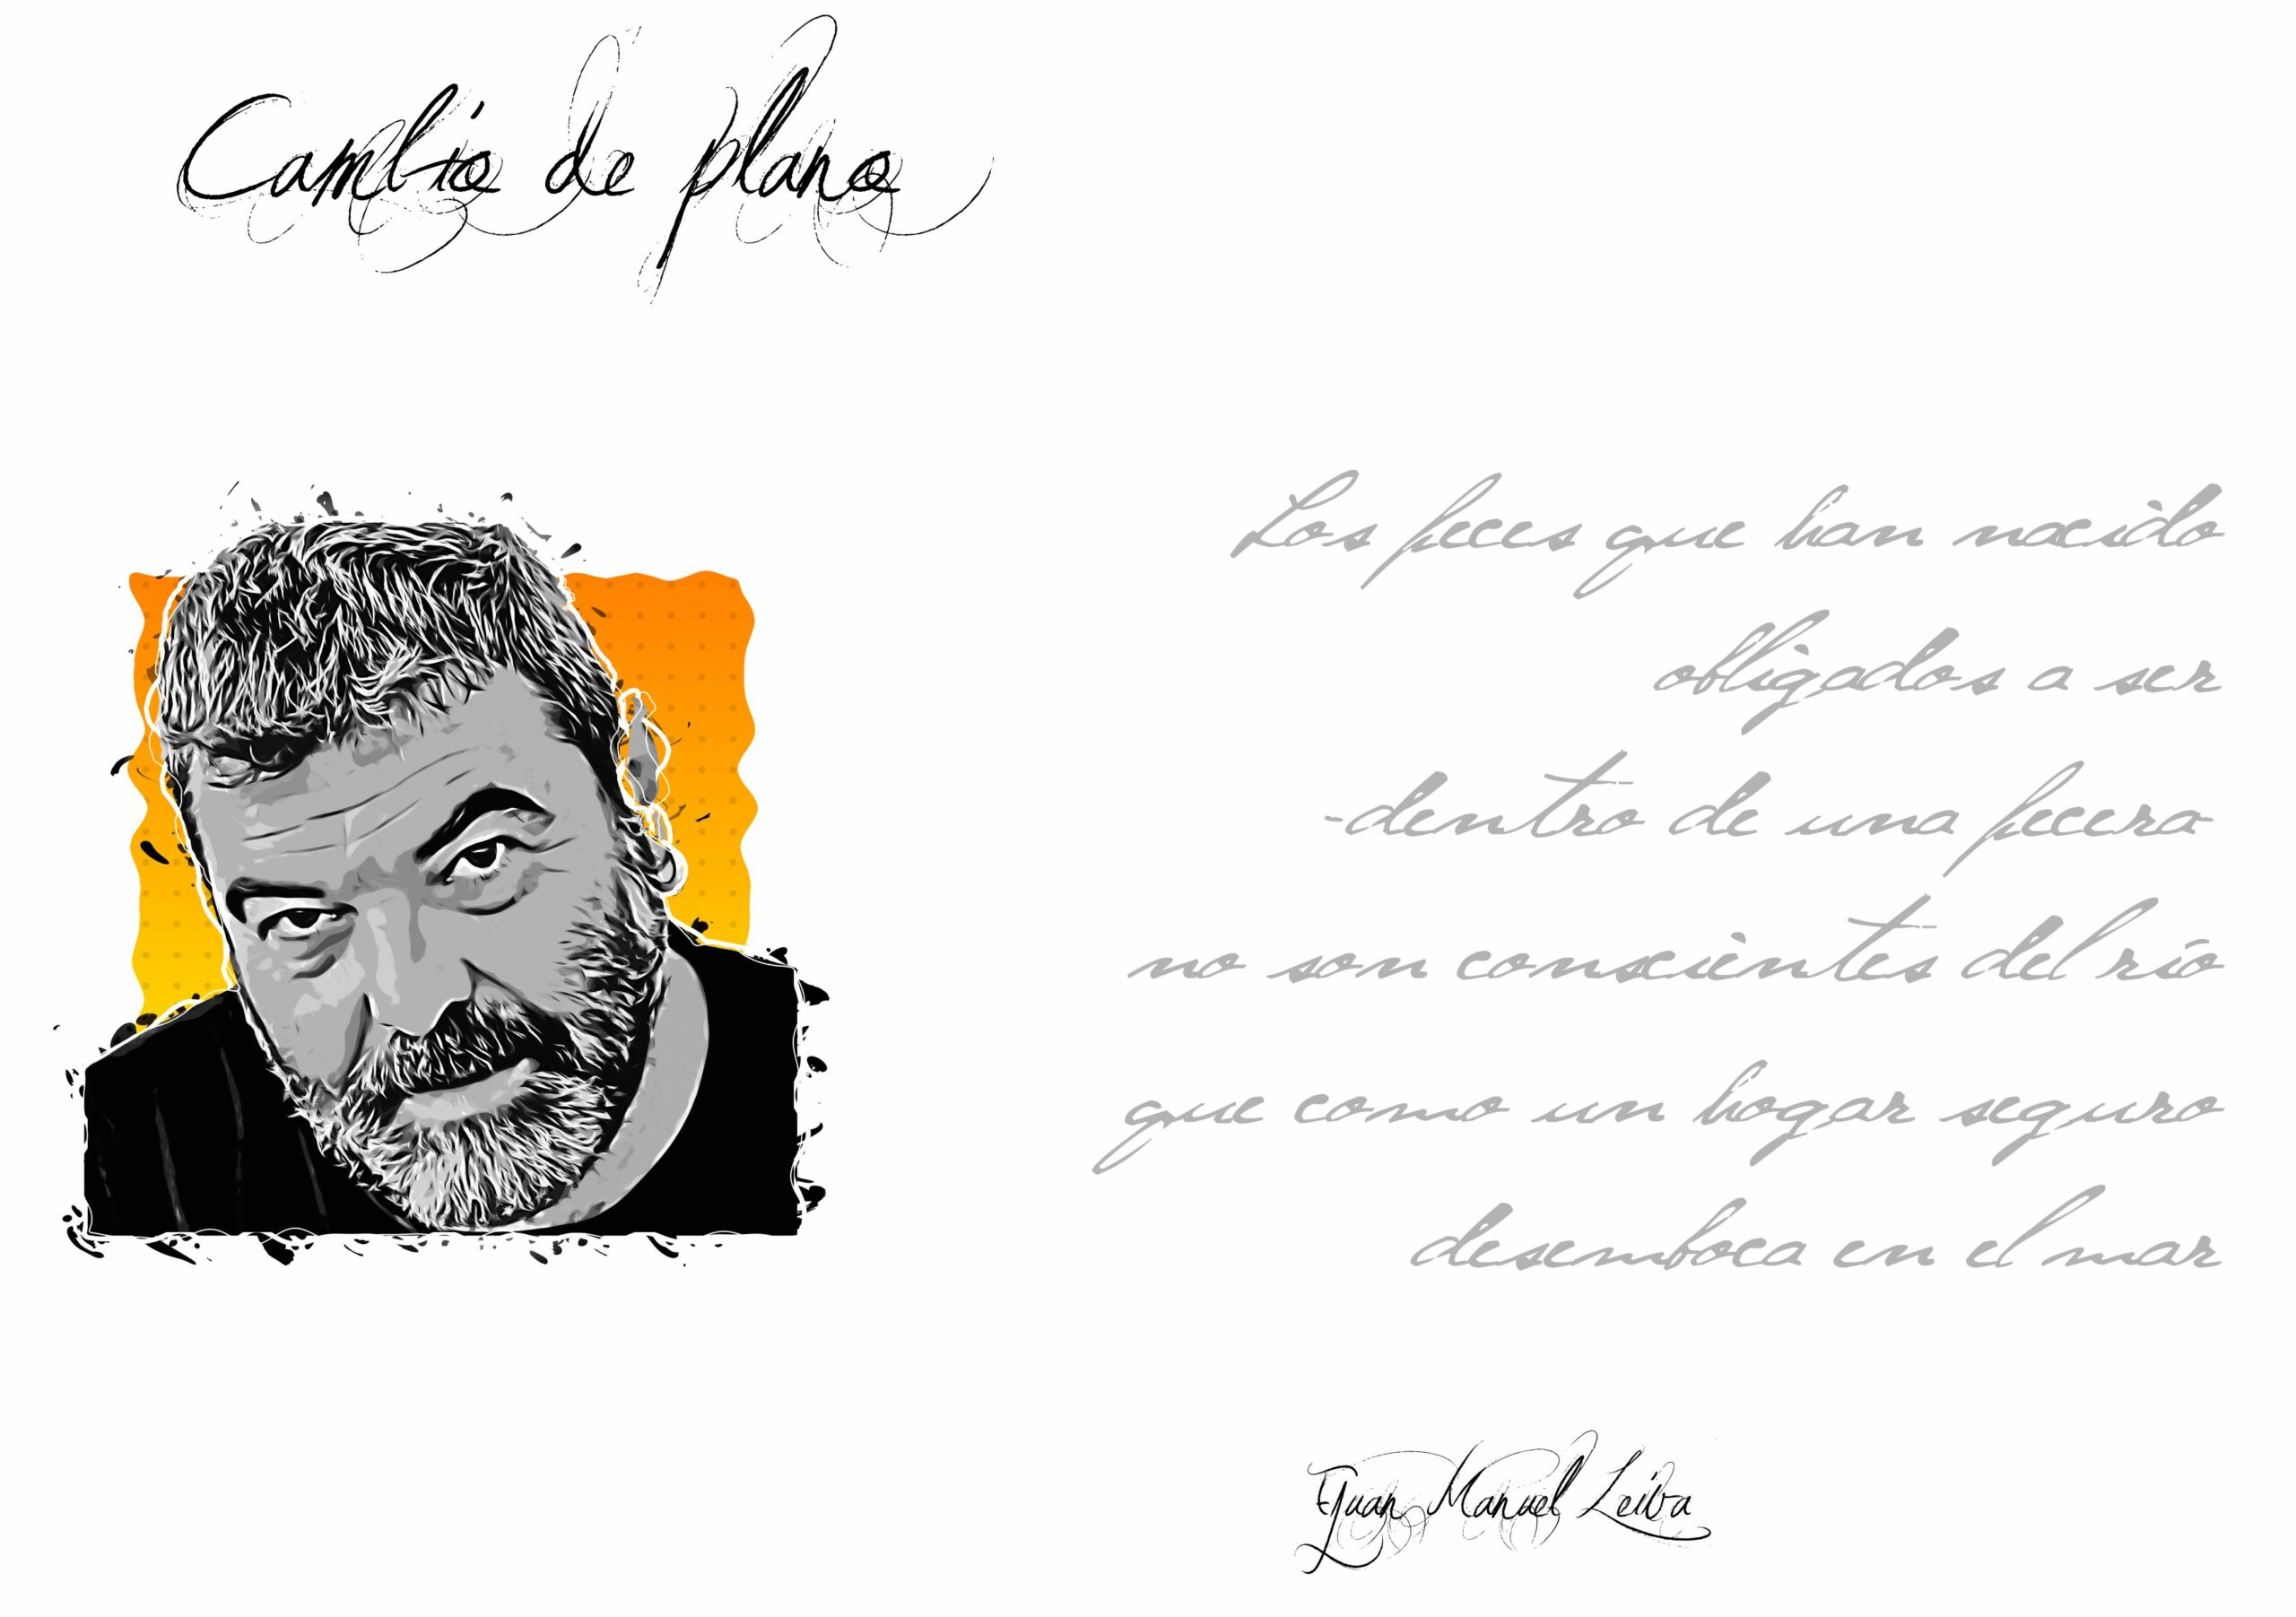 Cambio de plano
Los peces que han nacido
obligados a ser
-dentro de una pecera-
no son conscientes del río
que como un hogar seguro
desemboca en el mar
Juan Manuel Leiva